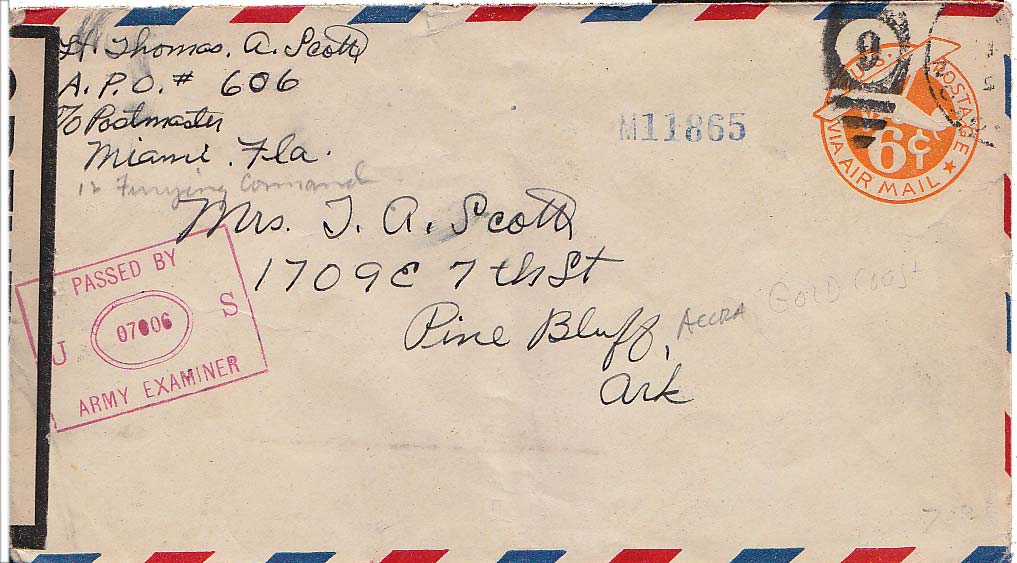 Lt Thomas. A. Scott
A. P. O. # 606
℅ Postmaster
Miami. Fla.
12 Ferrying Command
M11865
U.S. POSTAGE
6¢
VIA AIR MAIL
9
Mrs. T. A. Scott
1709 E 7th St
Pine Bluff,
Ark
ACCRA GOLD COAST
PASSED BY
07006
U S
ARMY EXAMINER